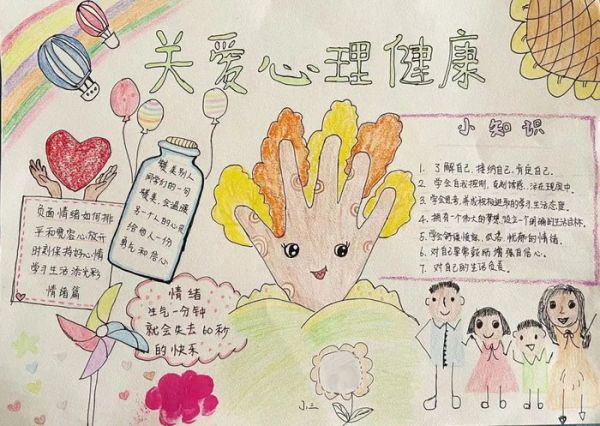 关爱心理健康
负面情绪如何排
平和宽容心放开
时刻保持好心情
学习生活添光彩
情绪篇
赞美别人
同学们的一句
赞美,会温暖
另一个人的心灵
给他人一份
勇气和信心
情绪
生气一分钟
就会失去60秒
的快乐
小知识
1. 了解自己,接纳自己,肯定自己。
2. 学会自我控制,克制情感,活在现实中。
3. 学会思考,养成积极进取的学习生活态度。
4. 拥有一个伟大的梦想,设立一个明确的生活目标。
5. 学会舒缓情绪
6. 对自己要常鼓励,增强自信心。
7. 对自己的生活负责。